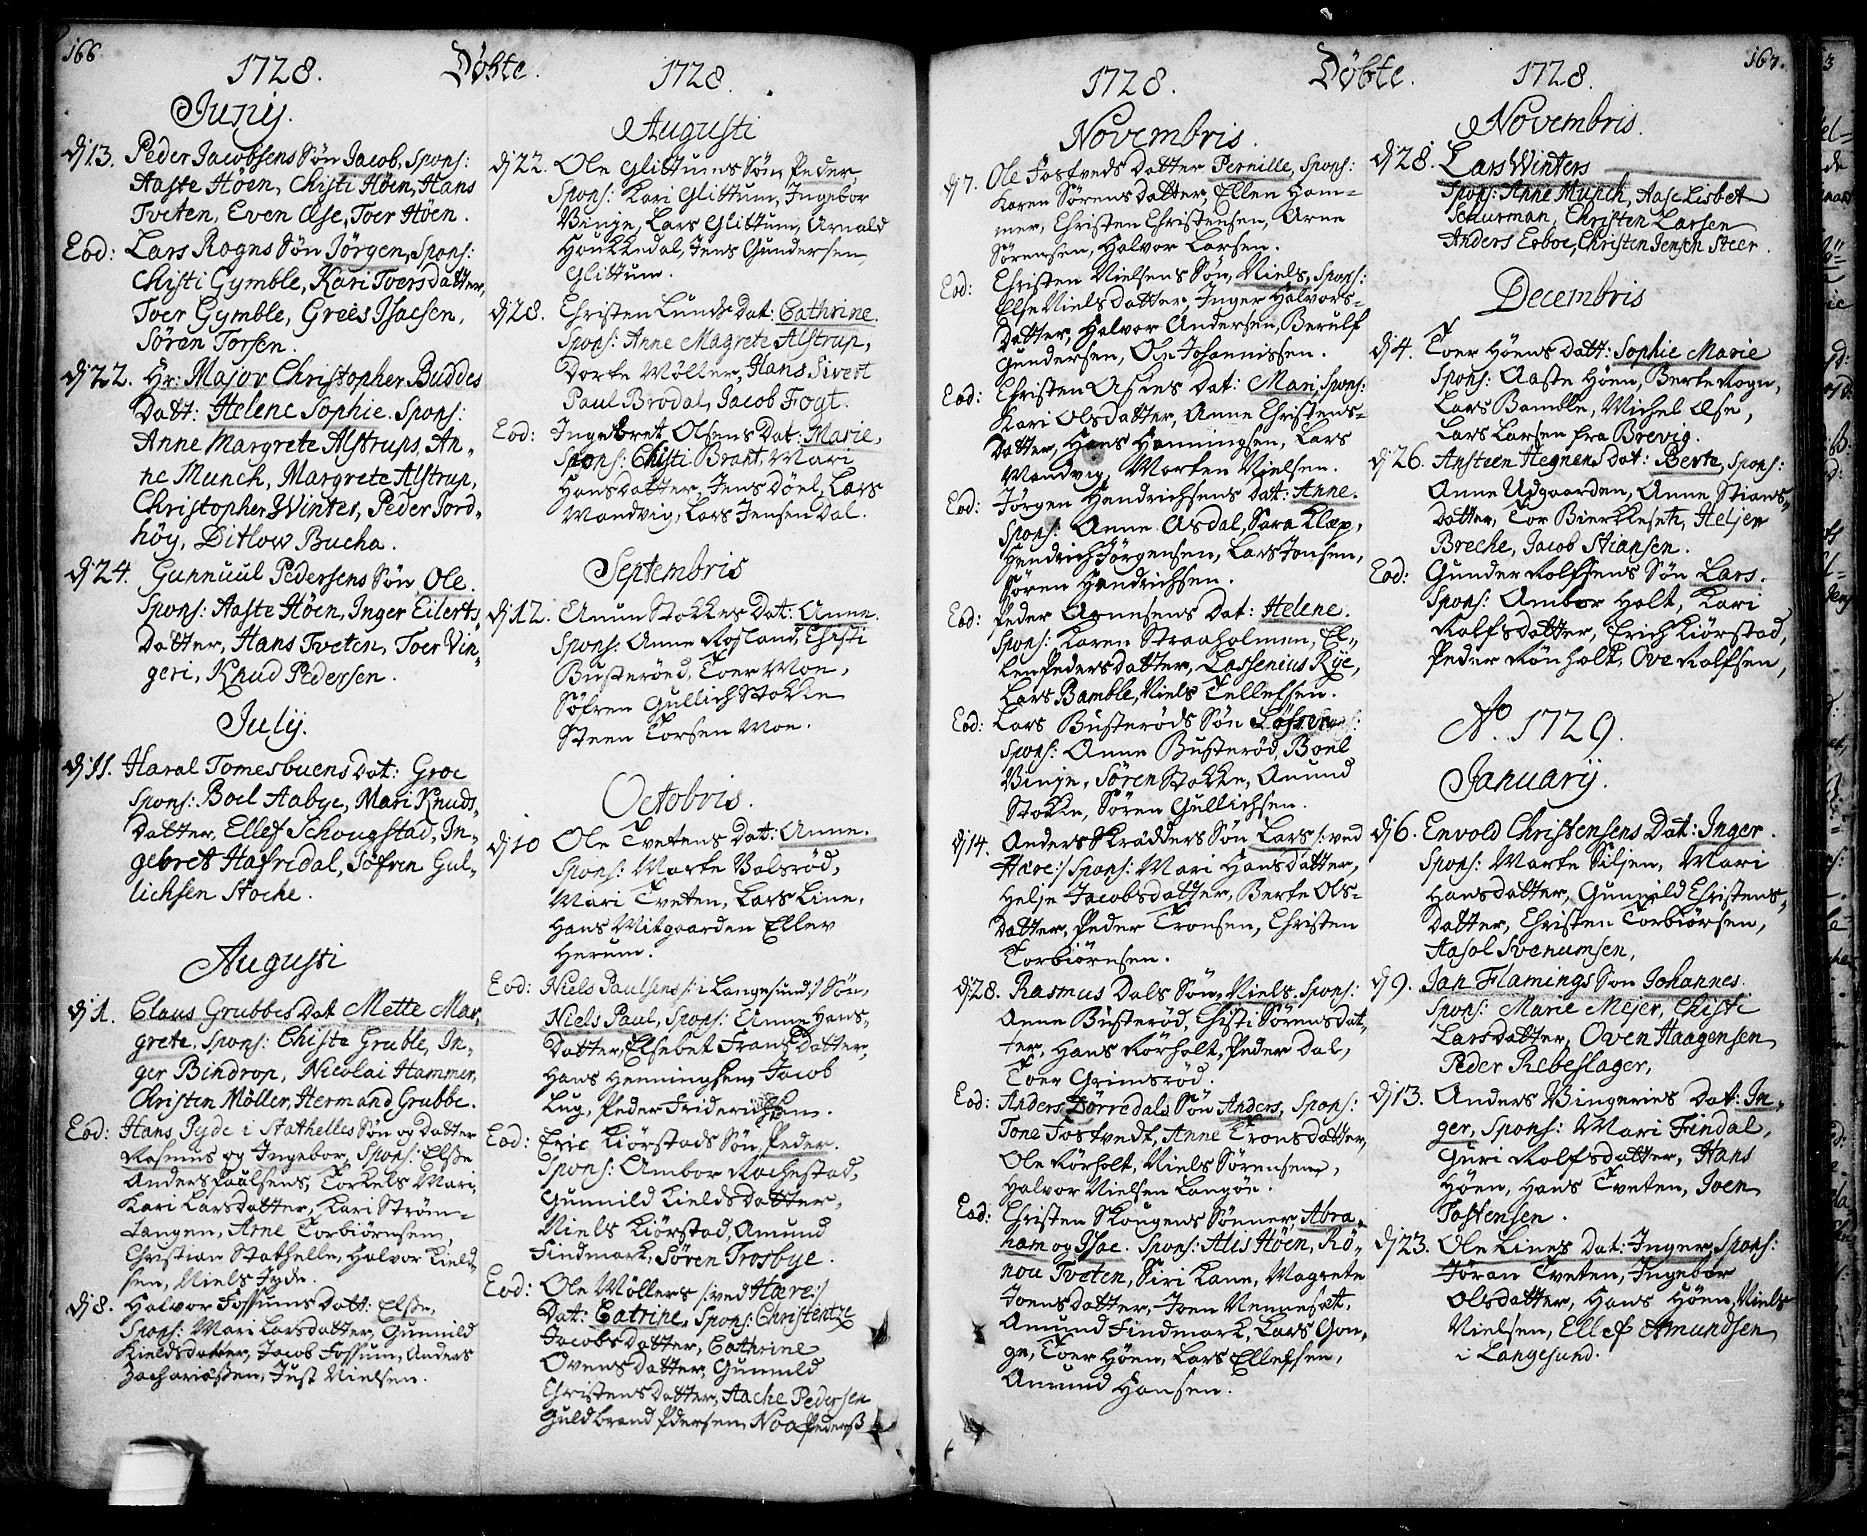 166
1728. Döbte. 1728.
Junij.
dj 13. Peder Jacobsens Sön Jacob, Spons:
Aaste Höen, Chisti Höen, Hans
Tveten, Even Ose, Toer Höen.
Eod: Lars Rogns Sön Jörgen, Spons:
Chisti Gymble, Kari Toersdatter,
Toer Gymble, Greis Isacsen,
Sören Torsen.
dj 22. Hr: Major Christopher Buddes
Datt: Helene Sophie. Spons:
Anne Margrete Alstrups, An-
ne Munch, Margrete Alstrup,
Christopher Winter, Peder Jord-
höy, Ditlow Bucha.
dj 24. Gunnuul Pedersens Sön Ole.
Spons: Aaste Höen, Inger Eilerts-
datter, Hans Tveten, Toer Vin-
geri, Knud Pedersen.
July.
dj 11. Haral Tomesbuens Dat: Groe
Spons: Boel Aabye, Mari Knuds-
datter, Ellef Schougstad, In-
gebret Hafredal, Söfren Gul-
lichsen Stoche.
Augusti
dj 1. Claus Grubbes Dat Mette Mar-
grete. Spons: Chiste Gruble, In-
ger Bindrop, Nicolai Hammer,
Christen Möller, Hermand Grubbe.
Eod: Hans Jyde i Stathelles Sön og Datter
Rasmus og Ingebor, Spons: Elsse
Anders Paulsens, Torkels Mari,
Kari Larsdatter, Kari Ström-
tangen, Arne Torbiörnsen,
Christian Stathelle, Halvor Kield-
sen, Niels Jyde.
dj 8. Halvor Fossums Datt: Elsse,
Spons: Mari Larsdatter, Gunnild
Kieldsdatter, Jacob Fossum, Anders
Zachariassen, Just Nielsen.
Augusti
dj 22. Ole Glittums Sön Peder
Spons: Kari Glittum, Ingebor
Vinje, Lars Glittum, Arnald
Houkkedal, Jens Gundersen
Glittum.
dj 28. Christen Lunds Dat: Cathrine.
Spons: Anne Magrete Alstrup,
Dorte Möller, Hans Sivert
Paul Brodal, Jacob Fogt.
Eod: Ingebret Olsens Dat: Marie,
Spons: Chisti Brant, Mari
Hansdatter, Jens Döel, Lars
Mandvig, Lars Jensen Dal.
Septembris
dj 12. Anun Stokkes Dat: Anne.
Spons: Anne Rosland, Chisti
Busteröed, Toer Moe,
Söfren Gullich Stokke
Steen Torsen Moe.
Octobris.
dj 10 Ole Tvetens Dat: Anne.
Spons: Marte Valsröd,
Mari Tveten, Lars Line,
Hans Mitgaarden Ellev
Herum.
Eod: Niels Paulsens /: i Langesund :/ Sön,
Niels Paul, Spons: Anne Hans-
datter, Elsebet Frantzdatter,
Hans Henningsen, Jacob
Lug, Peder Friderichsen.
Eod: Eric Kiörstads Sön, Peder.
Spons: Ambor Rochestad,
Gunnild Kieldsdatter,
Niels Kiörstad, Amund
Findmark, Sören Trosbye.
Eod: Ole Möllers /: ved Hære :/
Dat: Catrine, Spons: Christentze
Jacobsdatter, Cathrine
Ovensdatter, Gunnild
Christensdatter, Aache Pedersen
Guldbrand Pdersen, Noa Pederss
167.
1728. Döbte. 1728.
Novembris.
dj 7. Ole Fostveds Datter Pernille, Spons:
Karen Sörensdatter, Ellen Ham-
mer, Christen Christensen, Arne
Sörensen, Halvor Larsen.
Eod: Christen Nielsens Sön, Niels, Spons:
Else Nielsdatter, Inger Halvors-
datter, Halvor Andersen, Berulf
Gundersen, Ole Johannissen.
Eod: Christen Asfes Dat: Mari, Spons:
Kari Olsdatter, Anne Christens-
datter, Hans Henningsen, Lars
Mandvig, Morten Nielsen.
Eod: Jörgen Hendrichsens Dat: Anne.
Spons: Anne Asdal, Sara Klæp,
Hendrich Jörgensen, Lars Jonsen,
Sören Hendrichsen.
Eod: Peder Agnesens Dat: Helene.
Spons: Karen Straaholmen, El-
len Pedersdatter, Lassenius Kÿe,
Lars Bamble, Niels Tellefsen.
Eod: Lars Busteröds Sön Söfren,
Spons: Anne Busteröd, Boel
Vinje, Sören Stokke, Anund
Stokke, Sören Gullichsen.
dj 14. Anders Skrædders Sön Lars /: ved
Hære :/ Spons: Mari Hansdatter,
Helje Jacobsdatter, Berte Ols-
datter, Peder Tronsen, Christen
Torbiörnsen.
dj 28. Rasmus Dals Sön, Niels. Spons:
Anne Busteröd, Chisti Sörensdat-
ter, Hans Rörholt, Peder Dal,
Toer Grimsröd.
Eod: Anders Dörredals Sön Anders, Spons:
Tone Fostvedt, Anne Tronsdatter,
Ole Rörholt, Niels Sörensen,
Halvor Nielsen Langöe.
Eod: Christen Skougens Sönner, Abra-
ham og Isac. Spons: Alis Höen, Rö-
nou Tveten, Siri Lane, Magrete
Joensdatter, Joen Vennesæt,
Amund Findmark, Lars Gon-
ge, Toer Höen, Lars Ellefsen,
Amund Hansen.
Novembris.
dj 28. Lars Winters
Spons: Anne Munch, Aase Lisbet
Schurman, Christen Larsen
Anders Eeboe, Christen Jensen Steer.
Decembris
dj 4. Toer Höens Datt: Sophie Marie
Spons: Aaste Höen, Berte Rogn,
Lars Bamble, Michel Ose,
Lars Larsen fra Brevig.
dj 26. Ansteen Hegnens Dat: Berte, Spons:
Anne Udgaarden, Anne Stians-
datter, Tor Bierkkeseth, Heljer
Breche, Jacob Stiansen.
Eod: Gunder Rolfsens Sön Lars.
Spons: Ambor Holt, Kari
Rolfsdatter, Erich Kiörstad,
Peder Rönholt, Ove Rolfsen,
No. 1729.
Januarij.
dj 6. Envold Christensens Dat: Inger.
Spons: Marte Siljen, Mari
Hansdatter, Gunnild Christens-
datter, Christen Torbiörsen,
Aasol Svenumsen,
dj 9. Jan Flamings Sön Johannes.
Spons: Marie Mejer, Chisti
Larsdatter, Oven Haagensen
Peder Rebeslager,
dj 13. Anders Vingeries Dat: In-
ger, Spons: Mari Findal,
Guri Rolfsdatter, Hans
Höen, Hans Tveten, Joen
Tostensen.
dj 23. Ole Lines Dat: Inger, Spons:
Jöran Tveten, Ingebor
Olsdatter, Hans Höen, Niels
Nielsen, Ellef Amundsen
i Langesund.